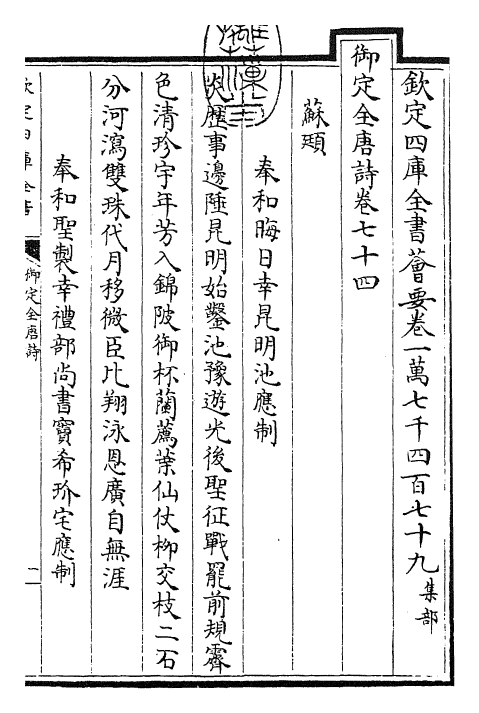 欽定四庫全書薈要卷一萬七千四百七十九 集部
御定全唐詩卷七十四
蘇頲
奉和晦日幸昆明池應制
炎歴事邊陲昆明始鑿池豫遊光後聖征戰罷前規霽
色清珍宇年芳入錦陂御杯蘭薦葉仙仗栁交枝二石
分河瀉雙珠代月移微臣比翔泳恩廣自無涯
奉和聖製幸禮部尚書竇希玠宅應制
欽定四庫全書
御定全唐詩
一